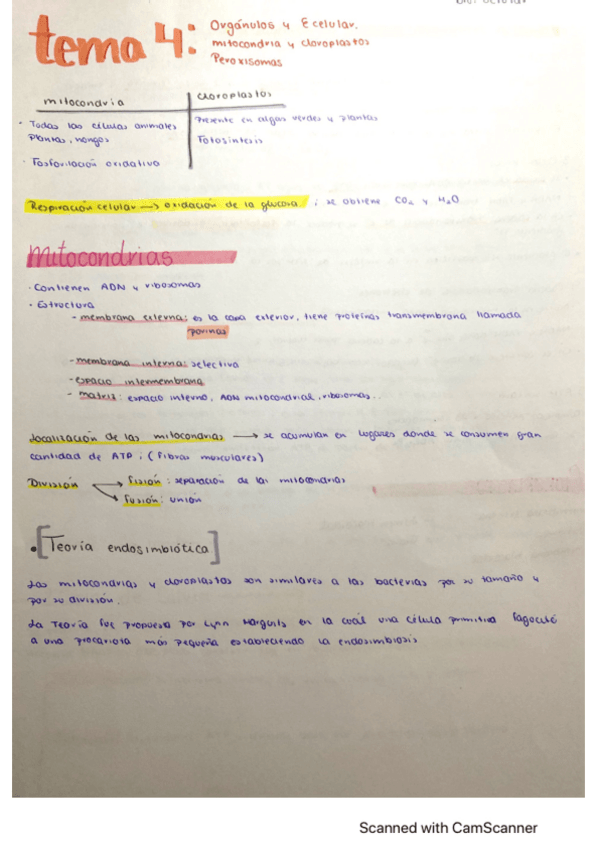 tema 4:
Orgánulos y E celular.
mitocondria y cloroplastos
Peroxisomas
mitocondria
cloroplastos
· Todas las células animales
Plantas, hongos
· Fosforilación oxidativa
Presente en algas verdes y plantas
Fotosíntesis
Respiración celular → oxidación de la glucosa ; se obtiene CO₂ y H₂O
mitocondrias
· Contienen ADN y ribosomas
· Estructura
- membrana externa: es la capa exterior, tiene proteínas transmembrana llamada
porinas
- membrana interna: selectiva
- espacio intermembrana
- matriz: espacio interno, ADN mitocondrial, ribosomas...
Localización de las mitocondrias → se acumulan en lugares donde se consumen gran
cantidad de ATP ; (fibras musculares)
División
fisión: separación de las mitocondrias
fusión: unión
• [Teoría endosimbiótica]
Las mitocondrias y cloroplastos son similares a las bacterias por su tamaño y
por su división.
La Teoría fue propuesta por Lynn Margulis en la cuál una célula primitiva fagocitó
a una procariota más pequeña estableciendo la endosimbiosis
Scanned with CamScanner